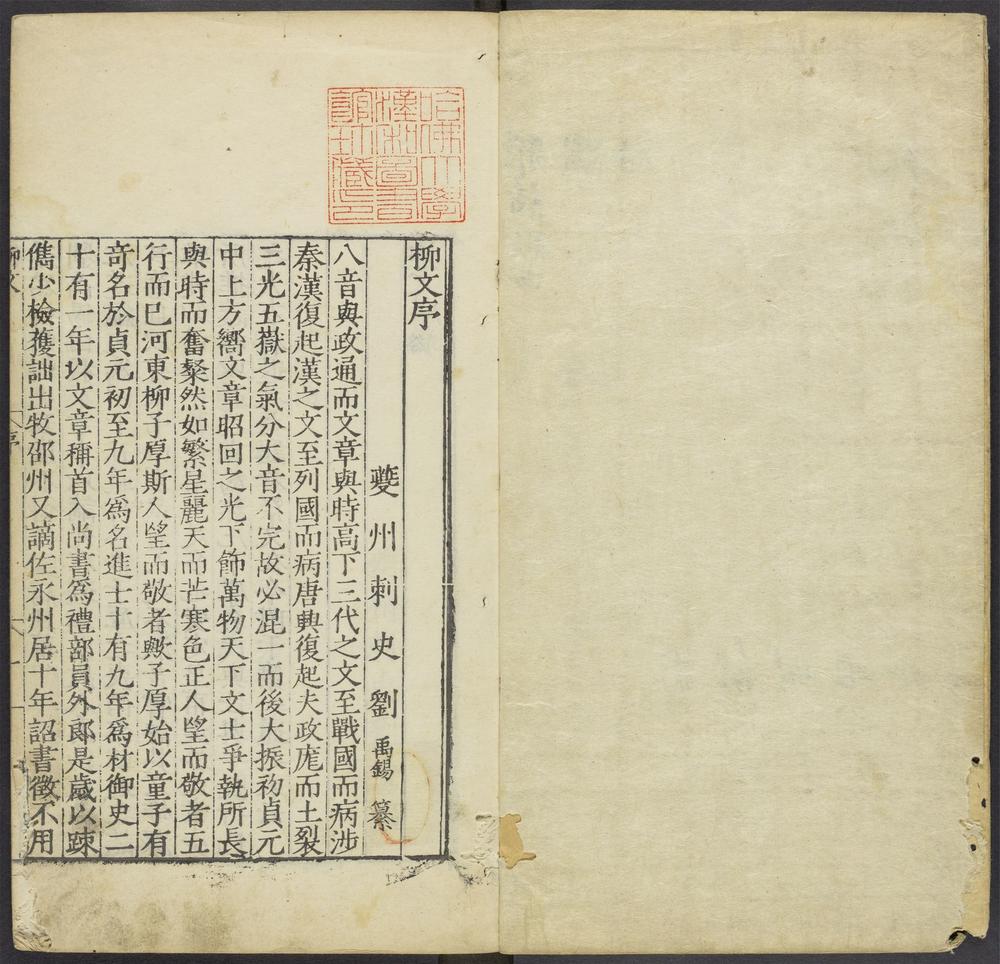 哈佛大學
漢和圖書
館珍藏印
柳文序
夔州刺史劉禹錫纂
八音與政通而文章與時高下三代之文至戰國而病涉
秦漢復起漢之文至列國而病唐興復起夫政庬而土裂
三光五嶽之氣分大音不完故必混一而後大振初貞元
中上方嚮文章昭回之光下飾萬物天下文士爭執所長
與時而奮粲然如繁星麗天而芒寒色正人望而敬者五
行而已河東柳子厚斯人望而敬者歟子厚始以童子有
奇名於貞元初至九年爲名進士十有九年爲材御史二
十有一年以文章稱首入尚書爲禮部員外郎是歲以疎
儁少檢獲訕出牧邵州又謫佐永州居十年詔書徵不用
柳文 序